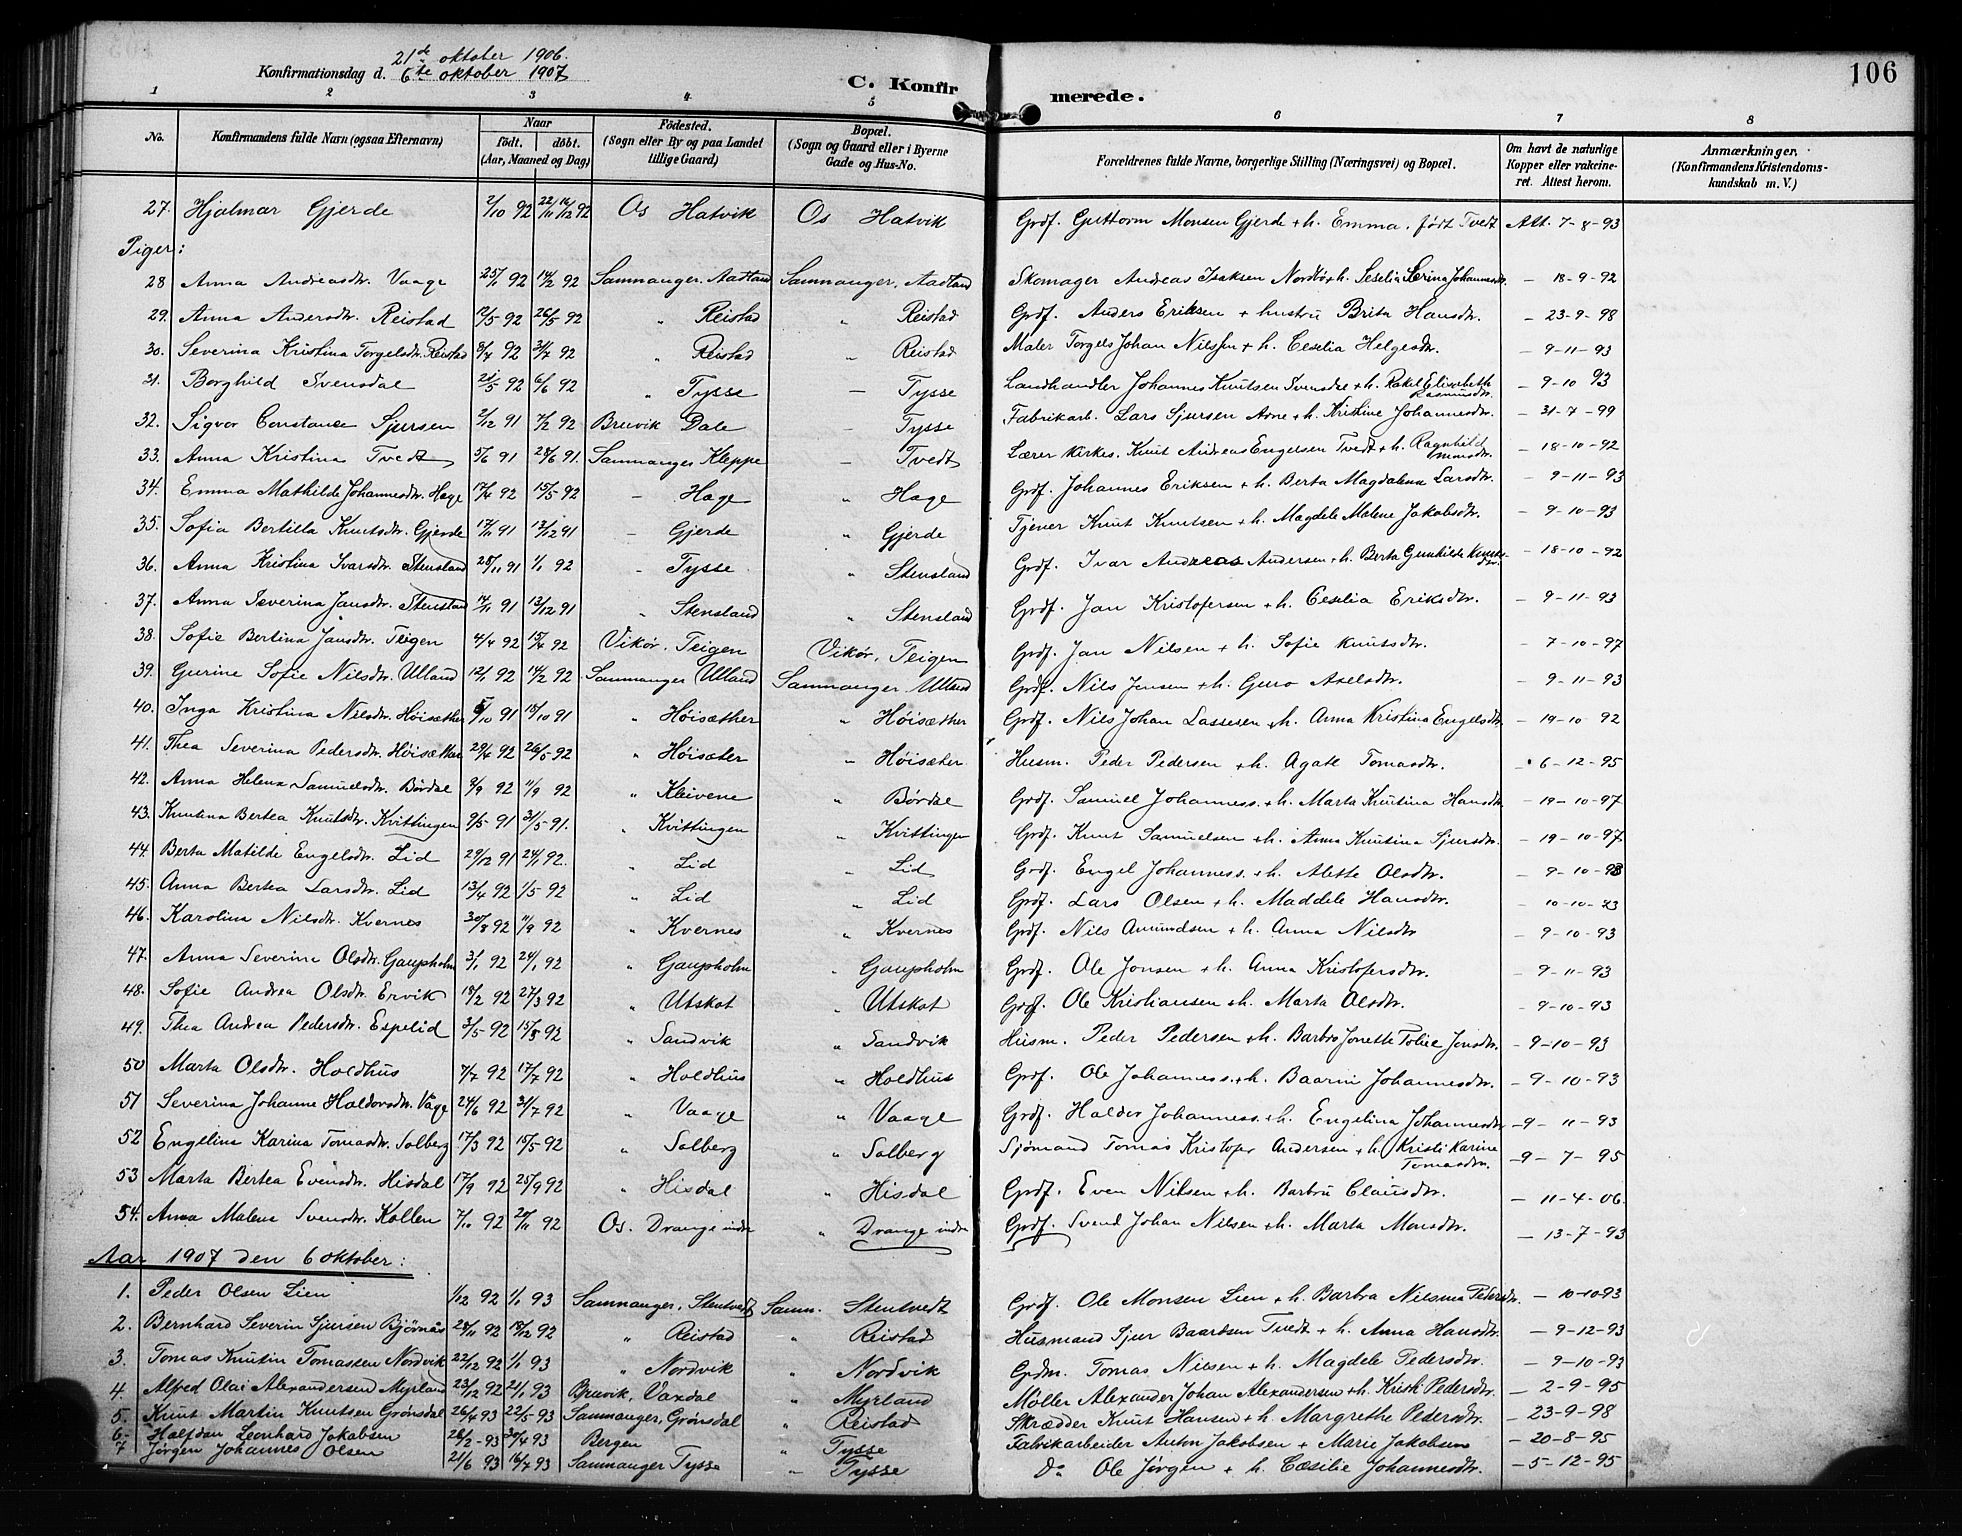 21de oktober 1906.
Konfirmationsdag d. 6te oktober 1907
C. Konfirmerede.
106
1 2 3 4 5 6 7 8
No. Konfirmandens fulde Navn (ogsaa Efternavn) Naar født. døbt. (Aar, Maaned og Dag) Fødested. (Sogn eller By og paa Landet tillige Gaard) Bopæl. (Sogn og Gaard eller i Byerne Gade og Hus-No. Forældrenes fulde Navne, borgerlige Stilling (Næringsvei) og Bopæl. Om havt de naturlige Kopper eller vakcineret. Attest herom. Anmærkninger, (Konfirmandens Kristendomskundskab m. V.)
27. Hjalmar Gjerde 2/10 92 Os Hatvik Os Hatvik Grdf. Guttorm Monsen Gjerde + h. Emma, født Tvedt Att. 7-8-93
Piger:
28 Anna Andreasdtr. Vaage 25/1 92 14/2 92 Samnanger. Aadland Samnanger, Aadland Skomager Andreas Isaksen Nordbø + h. Seselia Serina Johannesdtr. - 18-9-92
29. Anna Andersdtr. Reistad 12/5 92 26/5 92 " Reistad " Reistad Grdf. Anders Eriksen + hustru Brita Hansdtr. - 23-9-98
30. Severina Kristina Torgelsdtr. Reistad 8/4 92 3/7 92 " Reistad " Reistad Maler Torgels Johan Nilssen + h. Cesilia Helgesdtr. - 9-11-93
31. Borghild Svensdal 21/5 92 6/6 92 " Tysse - Tysse Landhandler Johannes Knutsen Svensdal + h. Rakel Elisabeth Rasmusdtr. - 9-10 93
32. Sigvor Constance Sjursen 2/12 91 7/2 92 Bruvik Dale - Tysse Fabrikarb. Lars Sjursen Arne + h. Kristine Johannesdtr. - 31-7-99
33. Anna Kristina Tvedt 5/6 91 28/6 91. Samnanger Kleppe - Tvedt Lærer Kirkes. Knut Andreas Engelsen Tvedt + h. Ragnhild Monsdtr. - 18-10-92
34. Emma Mathilde Johannesdtr. Hage 17/4 92 15/5 92 - Hage " Hage Grdf. Johannes Eriksen + h. Berta Magdalena Larsdtr. - 9-11-93
35. Sofia Bertilla Knutsdtr. Gjerde 17/11 91 13/12 91 - Gjerde " Gjerde Tjener Knut Knutsen + h. Magdele Malene Jakobsdtr. - 9-10-93
36. Anna Kristina Ivarsdtr. Stensland 28/11 91 1/1 92 - Tysse " Stensland Grdf. Ivar Andreas Andersen + h. Berta Gunhilde Knutsdtr. - 18-10-92
37. Anna Severina Jansdtr. Stensland 17/11 91 13/12 91 " Stensland " Stensland Grdf. Jan Kristofersen + h. Cesilia Eriksdtr. - 9-11-93
38. Sofie Bertina Jansdtr. Teigen 4/4 92 15/4 92 Vikør, Teigen Vikør, Teigen Grdf. Jan Nilsen + h. Sofie Knutsdtr. - 7-10-97
39. Gurine Sofie Nilsdtr. Ulland 12/1 92 14/2 92 Samnanger Ulland Samnanger Ulland Grdf. Nils Jensen + h. Guro Axelsdtr. - 9-11-93
40. Inga Kristina Nilsdtr. Høisæther 5/10 91 18/10 91 " Høisæther " Høisæther Grdf. Nils Johan Lassesen + h. Anna Kristina Engelsdtr. - 19-10 92
41. Thea Severina Pedersdtr. Høisæther 29/4 92 26/5 92 " Høisæter " Høisæter Husm. Peder Pedersen + h. Agate Tomasdtr. - 6-12-95
42. Anna Helena Samuelsdtr. Børdal 9/9 92 11/9 92 " Kleivene " Børdal Grdf. Samuel Johanness. + h. Marta Knutina Hansdtr. - 19-10-97
43. Knutina Bertea Knutsdtr. Kvittingen 9/5 91 31/5 91. " Kvittingen " Kvittingen Grdf. Knut Samuelsen + h. Anna Knutina Sjursdtr. - 19-10-97
44. Berta Matilde Engelsdtr. Lid 29/12 91 24/1 92. " Lid " Lid Grdf. Engel Johanness. + h. Alette Olsdtr. - 9-10-93
45. Anna Bertea Larsdtr. Lid 13/4 92 1/5 92 " Lid " Lid Grdf. Lars Olsen + h. Maddele Hansdtr. - 10-10-93
46. Karolina Nilsdtr. Kvernes 30/8 92 11/9 92 " Kvernes " Kvernes Grdf. Nils Amundsen + h. Anna Nilsdtr - 9-10-93
47. Anna Severine Olsdtr. Gaupholm 3/1 92 24/1 92 " Gaupholm " Gaupholm Grdf. Ole Jonsen + h. Anna Kristofersdtr. - 9-11-93
48. Sofie Andrea Olsdtr. Ervik 18/2 92 27/3 92 " Utskot " Utskot Grdf. Ole Kristiansen + h. Marta Olsdtr. - 9-10-93
49. Thea Andrea Pedersdtr. Espelid 3/5 92 15/5 92 " Sandvik " Sandvik Husm. Peder Pedersen + h. Barbro Jonette Tolie Jonsdtr. - 9-10-93
50 Marta Olsdtr. Holdhus 7/7 92 17/7 92 " Holdhus " Holdhus Grdf. Ole Johanness. + h. Baarni Johannesdtr. - 9-10-93
51 Severina Johanne Haldorsdtr. Våge 24/6 92 31/7 92 " Vaage " Vaage Grdf. Haldor Johanness. + h. Engelina Johannesdtr - 9-11-93
52 Engelina Karina Tomasdtr. Solberg 17/3 92 15/5 92 " Solberg " Solberg Sjømand Tomas Kristofer Andersen + h. Kristi Karine Tomasdtr. - 9-7-95
53 Marta Bertea Evensdtr. Hisdal 17/9 92 25/9 92 " Hisdal " Hisdal Grdf. Even Nilsen + h. Barbru Clausdtr. - 11-4-06.
54. Anna Malena Svensdtr. Kollen 7/10 92 20/11 92 Os. Drange indre " Drange indre Grdf. Svend Johan Nilsen + h. Marta Monsdtr. - 13-7-93
Aar 1907 den 6 oktober:
1. Peder Olsen Lien 1/12 92 1/1 93 Samnanger, Stentvedt Samn. Stentvedt Grdf. Ole Monsen Lien + h. Barbra Nilsina Pedersdtr. - 10-10-93
2. Bernhard Severin Sjursen Bjørnås 28/11 92 18/12 92 " Reistad " Reistad Husmand Sjur Baardsen Tvedt + h. Anna Hansdtr. - 9-12-93
3. Tomas Knutin Tomassen Nordvik 22/12 92 1/1 93 " Nordvik " Nordvik Grdm. Tomas Nilsen + h. Magdele Pedersdtr. - 9-10-93
4. Alfred Olai Alexandersen Myrland 23/12 92 21/1 93 Bruvik, Vaxdal " Myrland Møller Alexander Johan Alexandersen + h. Kristi Pedersdtr. - 2-9-95
5. Knut Martin Knutsen Grønsdal 26/4 93 22/5 93 Samnanger, Grønsdal " Reistad Skrædder Knut Hansen + h. Margrethe Pedersdtr. - 23-9-98
6. Halfdan Leonhard Jakobsen 26/2 - 93 30/4 93 Bergen " Tysse Fabrikarbeider Anton Jakobsen + Marie Jakobsen - 20-8-95
7 Jørgen Johannes Olsen 21/6 93 16/7 93 Samnanger Tysse " Tysse Do Ole Jørgen + h. Cæsilie Johannesdtr. - 5-12-95